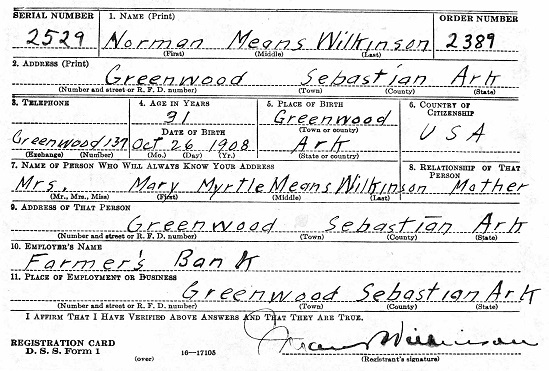 SERIAL NUMBER 1. NAME (Print) ORDER NUMBER
2529 Norman Means Wilkinson 2389
(First) (Middle) (Last)
2. ADDRESS (Print)
Greenwood Sebastian Ark
(Number and street or R. F. D. number) (Town) (County) (State)
3. TELEPHONE 4. AGE IN YEARS 5. PLACE OF BIRTH 6. COUNTRY OF CITIZENSHIP
31 Greenwood
DATE OF BIRTH (Town or county) USA
Greenwood 137 Oct 26 1908 Ark
(Exchange) (Number) (Mo.) (Day) (Yr.) (State or country)
7. NAME OF PERSON WHO WILL ALWAYS KNOW YOUR ADDRESS 8. RELATIONSHIP OF THAT PERSON
Mrs. Mary Myrtle Means Wilkinson Mother
(Mr., Mrs., Miss) (First) (Middle) (Last)
9. ADDRESS OF THAT PERSON
Greenwood Sebastian Ark
(Number and street or R. F. D. number) (Town) (County) (State)
10. EMPLOYER'S NAME
Farmer's Bank
11. PLACE OF EMPLOYMENT OR BUSINESS
Greenwood Sebastian Ark
(Number and street or R. F. D. number) (Town) (County) (State)
I AFFIRM THAT I HAVE VERIFIED ABOVE ANSWERS AND THAT THEY ARE TRUE.
Wilkinson
REGISTRATION CARD
D. S. S. Form 1 (over) 16—17105 (Registrant's signature)